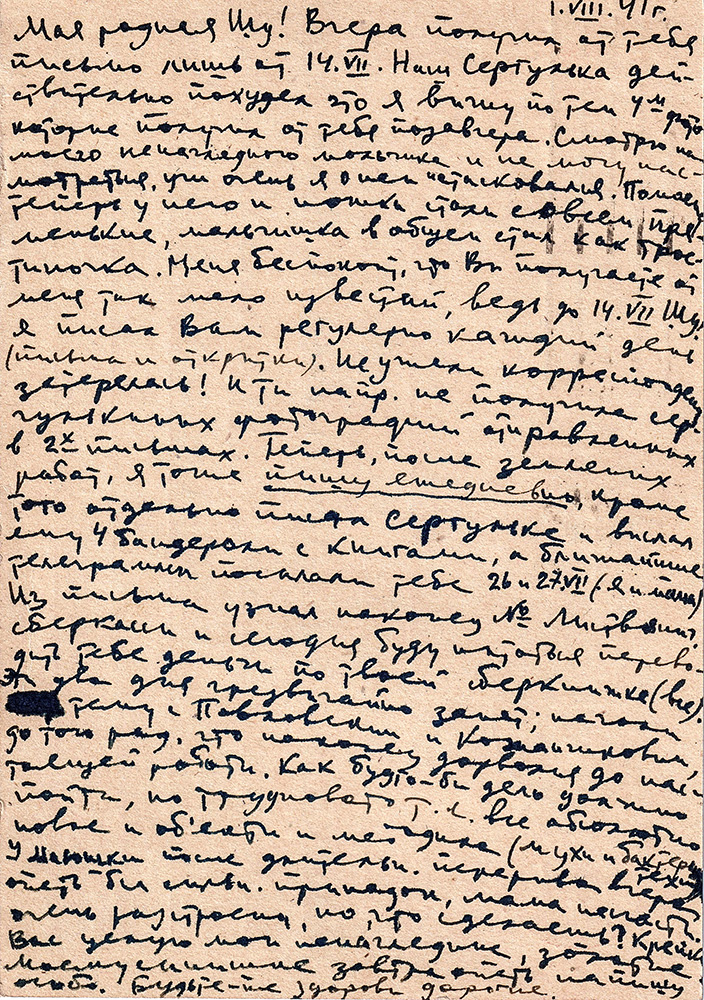 1.VIII.41г.
Моя родная Шу! Вчера получил от тебя
письмо лишь от 14.VII. Наш Сергулька дей-
ствительно похудел это я вижу по тем 4м фото
которые получил от тебя позавчера. Смотрю на
моего ненаглядного мальчика и не могу нас-
мотреться, уж очень я о нем истосковался.
теперь у него и ножки стали совсем пря-
менькие, мальчишка в общем стал как трос-
тиночка. Меня беспокоит, что Вы получаете от
меня так мало известий, ведь до 14.VII Шу,
я писал Вам регулярно каждый день
(письма и открытки). Неужели корреспонденц.
затерялась! И ты напр. не получила Сер-
гулькиных фотографий отправленных
в 2х письмах. Теперь, после земляных
работ, я тоже пишу ежедневно, кроме
того отдельно писал Сергульке и выслал
ему 4 бандероли с книгами, а ближайшие
телеграммы посылали тебе 26 и 27.VII (я и мама)
Из письма узнал наконец №
сберкассы и сегодня буду пытаться перево-
дить тебе деньги по твоей сберкнижке (все).
Эти два дня чрезвычайно занят; начали
тему с Павловским и
до того рад, что наконец дорвался до нас-
тоящей работы. Как будто-бы дело должно
пойти, но трудновато т.к. все абсолютно
новое и объекты и методика (мухи и бактерии)
У Манюшки после длительн. перерыва вчера
опять был сильн. припадок, мама
очень расстроена, но, что сделаешь? Крепко
Вас целую мои ненаглядные, золотые
моему сынишке завтра опять напишу
особо. Будьте-же здоровы дорогие